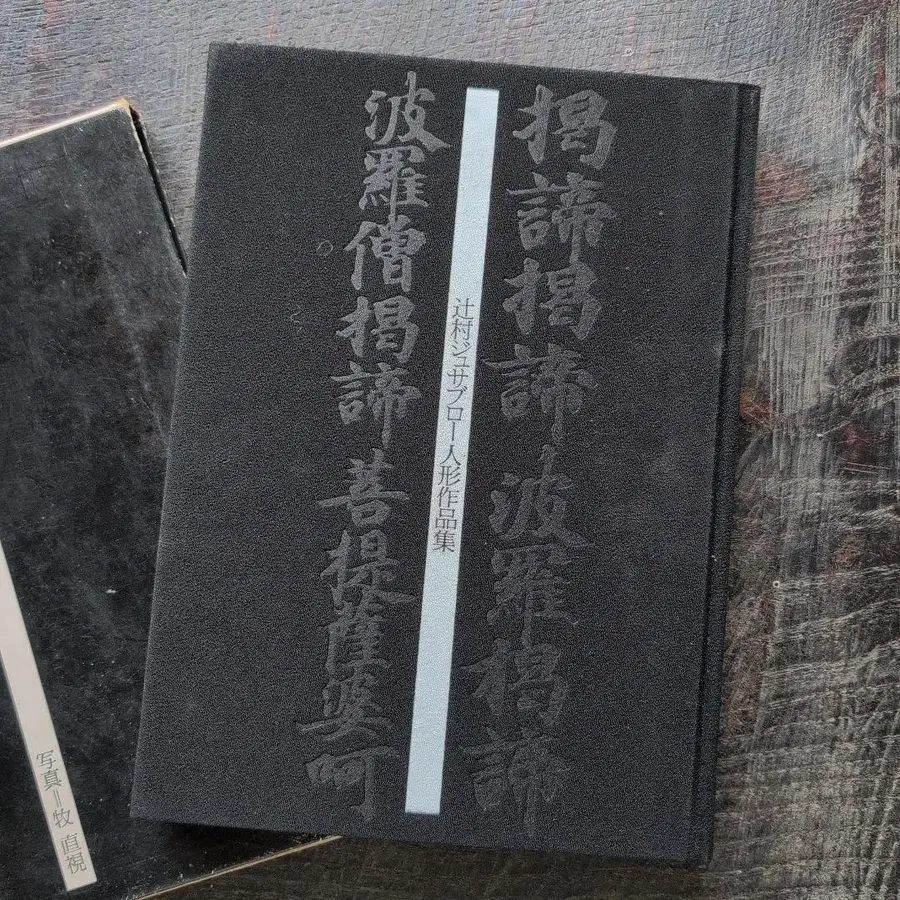 揭諦揭諦波羅揭諦
辻村ジュサブロー人形作品集
波羅僧揭諦菩提薩婆呵
写真=牧 直視